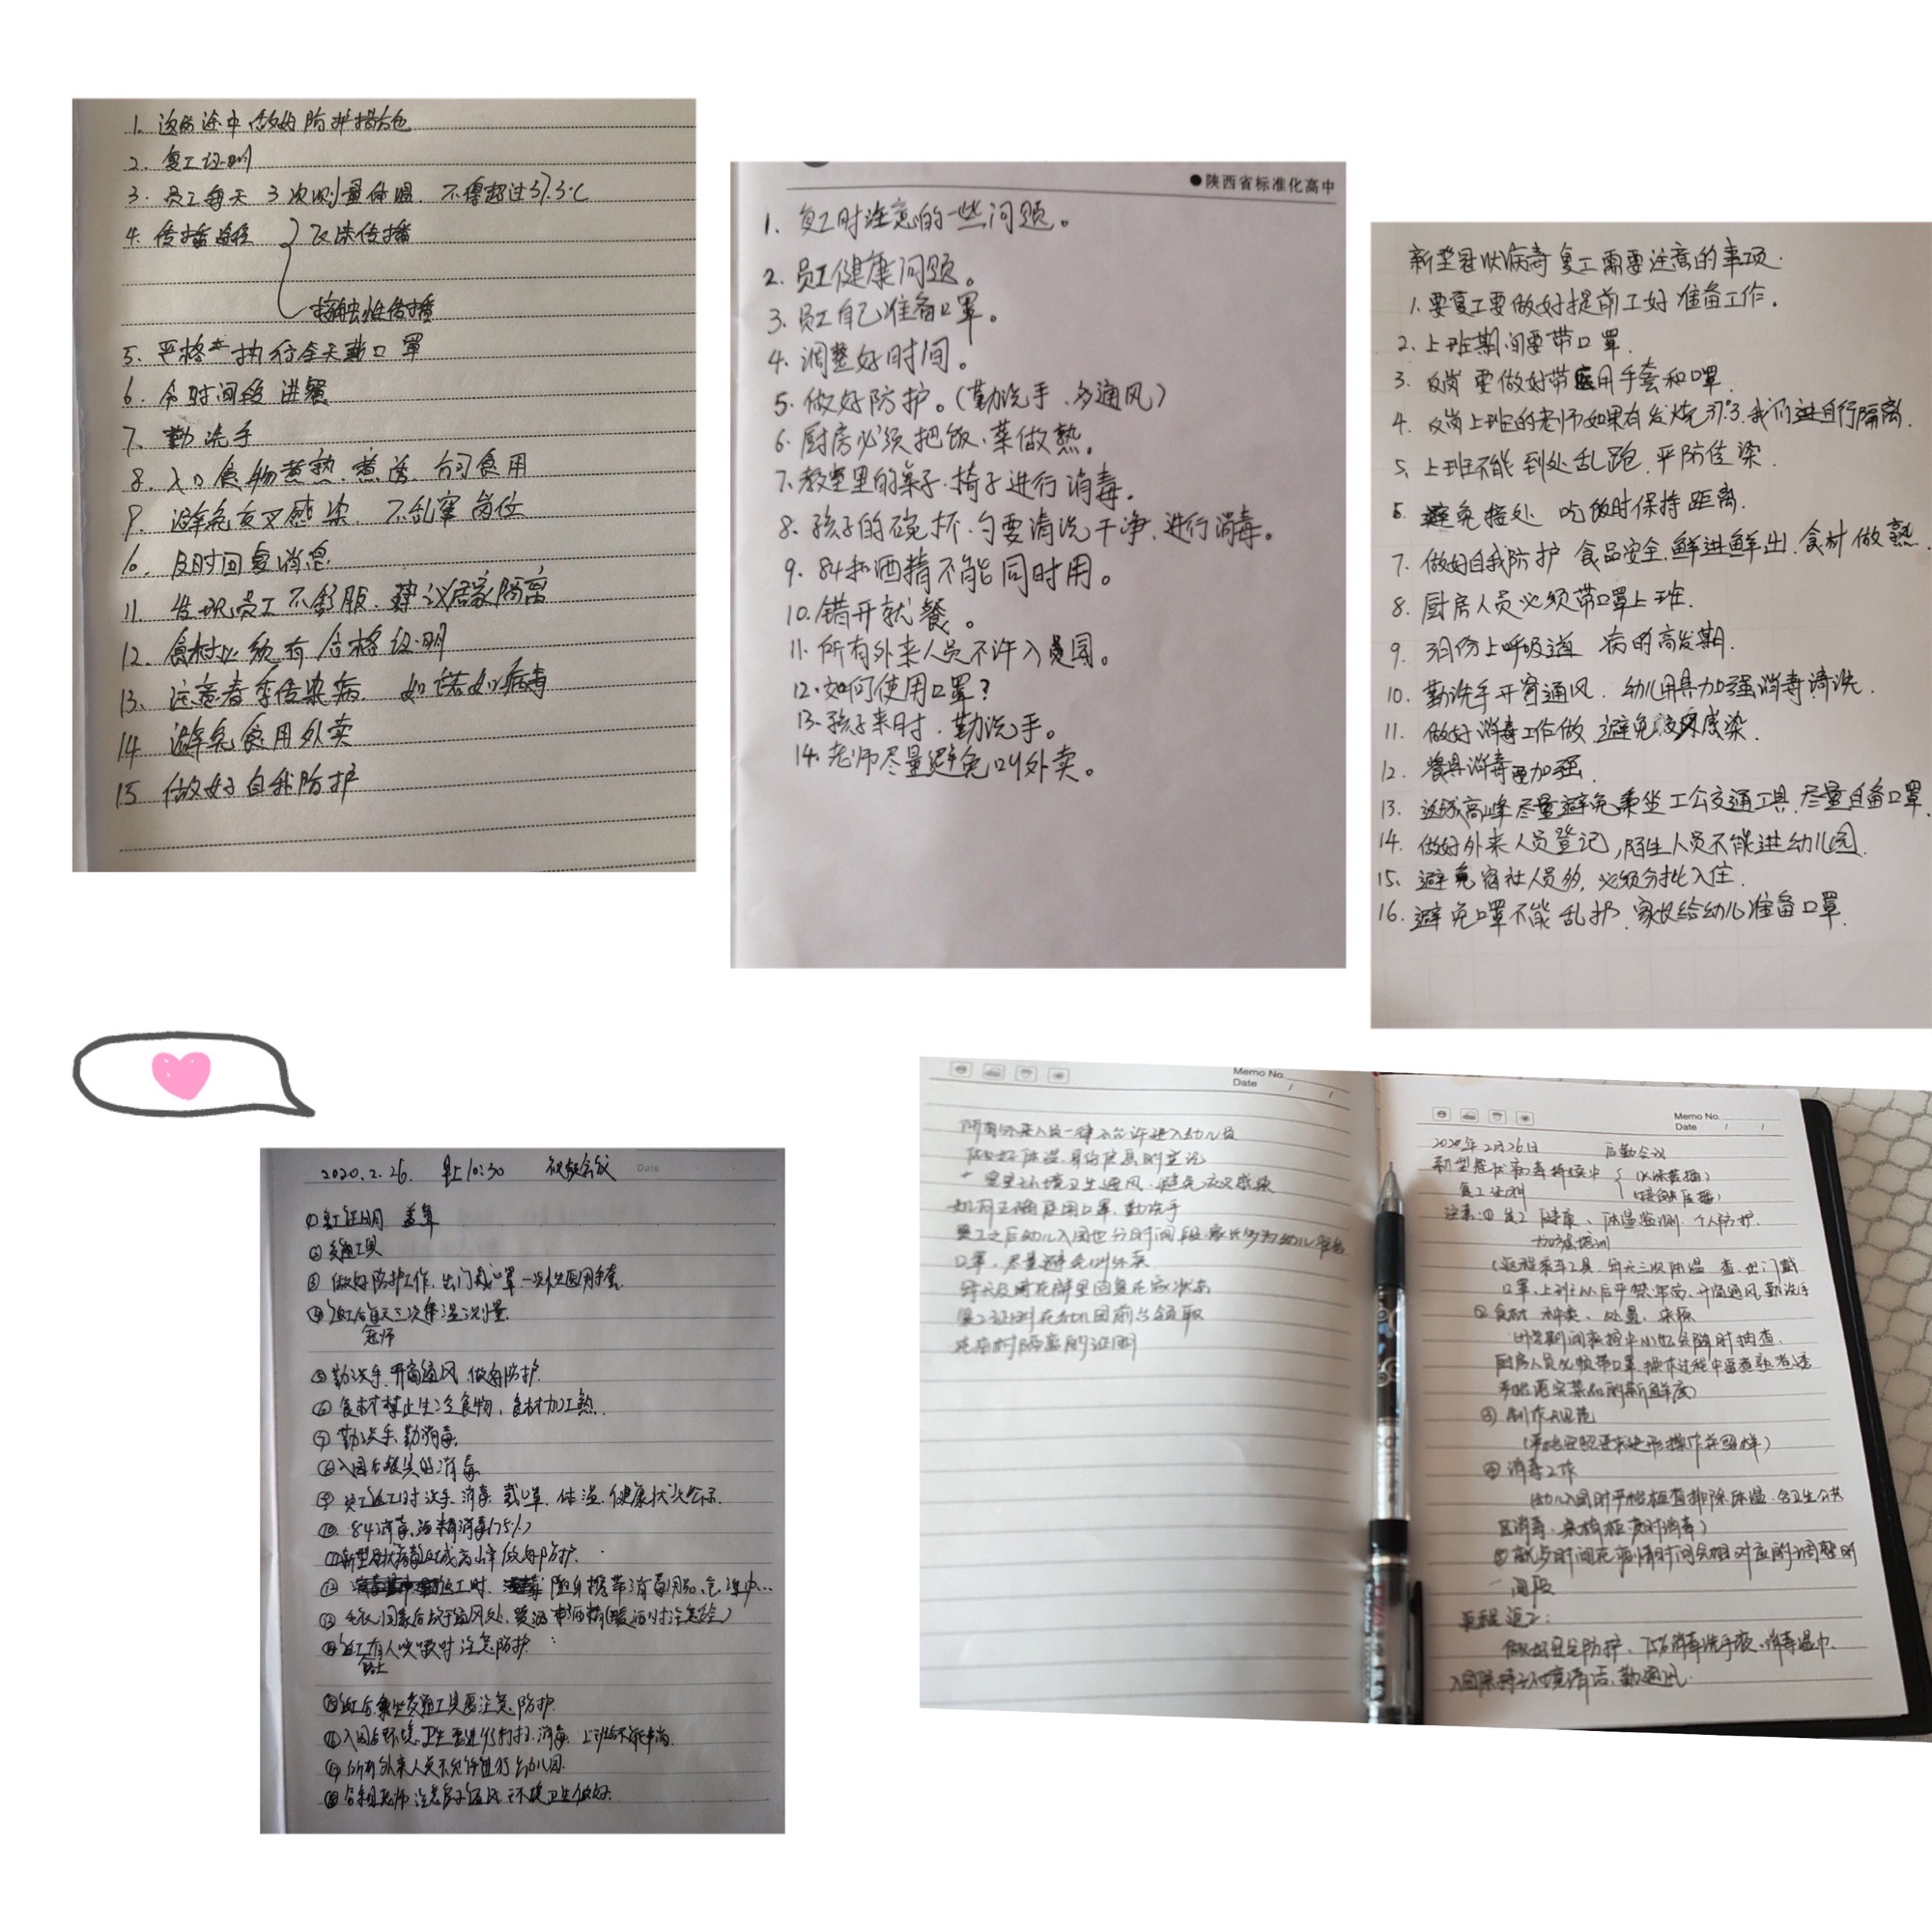 1. 返岗途中做好防护措施
2. 复工证明
3. 员工每天3次测量体温. 不得超过37.3℃
4. 传播途径 飞沫传播
接触性传播
5. 严格执行全天戴口罩
6. 分时间段进餐
7. 勤洗手
8. 入口食物煮熟.煮透.方可食用
9. 避免交叉感染 不乱窜岗位
10. 及时回复消息
11. 发现员工不舒服. 建议居家隔离
12. 食材必须有合格证明
13. 注意春季传染病. 如诺如病毒
14 避免食用外卖
15 做好自我防护
●陕西省标准化高中
1. 复工时注意的一些问题。
2. 员工健康问题。
3. 员工自己准备口罩。
4. 调整好时间。
5. 做好防护。(勤洗手、多通风)
6. 厨房必须把饭、菜做熟。
7. 教室里的桌子.椅子进行消毒.
8. 孩子的碗.杯.勺要清洗干净.进行消毒。
9. 84和酒精不能同时用。
10. 错开就餐。
11. 所有外来人员不许入园。
12. 如何使用口罩?
13. 孩子来时、勤洗手。
14. 老师尽量避免叫外卖。
新型冠状病毒复工需要注意的事项.
1. 要复工要做好提前工好准备工作.
2. 上班期间要带口罩.
3. 返岗要做好带医用手套和口罩.
4. 返岗上班的老师如果有发烧37°3.我们进自行隔离.
5. 上班不能到处乱跑.平防传染.
6. 避免接处 吃饭时保持距离.
7. 做好自我防护 食品安全.鲜进鲜出.食材做熟.
8. 厨房人员必须带口罩上班.
9. 3月份上呼吸道 病的高发期.
10. 勤洗手开窗通风. 幼儿用具加强消毒清洗.
11. 做好消毒工作做.避免感染.
12. 餐具消毒要加强.
13. 返城高峰尽量避免乘坐工公交通工具.尽量自备口罩.
14. 做好外来人员登记,陌生人员不能进幼儿园.
15. 避免宿社人员多,必须分批入住.
16. 避免口罩不能乱扔.家长给幼儿准备口罩.
2020.2.26. 早上10:30 视频会议 Date
①复工证明 盖章
②交通工具
③做好防护工作.出门戴口罩.一次性医用手套.
④返工后每天三次体温测量.
老师
⑤勤洗手.开窗通风.做好防护.
⑥食材禁止生冷食物,食材加工熟.
⑦勤洗手.勤消毒.
⑧入园后餐具的消毒
⑨员工返工时洗手.消毒.戴口罩.体温.健康状况公示.
⑩.84消毒.酒精消毒(75%)
⑪新型冠状病毒返城高峰做好防护.
⑫返工时.随身携带消毒用品.
⑬毛衣回家后放于通风处.
⑭返工有人咳嗽时注意防护.
⑮返工后乘坐交通工具要注意防护.
⑯入园后环境卫生要进行打扫.消毒.上班后不能串岗.
⑰所有外来人员不允许进行幼儿园.
⑱各班老师注意房子通风.环境卫生做好.
Memo No.
Date / /
所有外来人员一律不允许进入幼儿员
做好体温.身份信息的登记
室里环境卫生通风.避免交叉感染
如何正确使用口罩,勤洗手
复工之后幼儿入园也分时间段.家长多为幼儿准备
口罩,尽量避免叫外卖
每天及时在群里回复在家状态
复工证明在幼儿园前台领取
Memo No.
Date / /
2020年2月26日 后勤会议
新型冠状病毒持续中 (飞沫传播)
复工证明 (接触传播)
注意:①员工健康、体温监测.个人防护.
加强培训
(返程乘车工具.每天三次体温查.出门戴
口罩,上班以后严禁串岗.开窗通风.勤洗手
②食材 种类、处置、来源
厨房人员必须带口罩.操作过程中要煮熟煮透
③制作规范
④消毒工作
(幼儿入园时严格检查排除体温.各卫生公共
区消毒.
间段
返程返工:
做好安全防护、75%消毒洗手液.消毒湿巾.
入园保持环境清洁.勤通风.